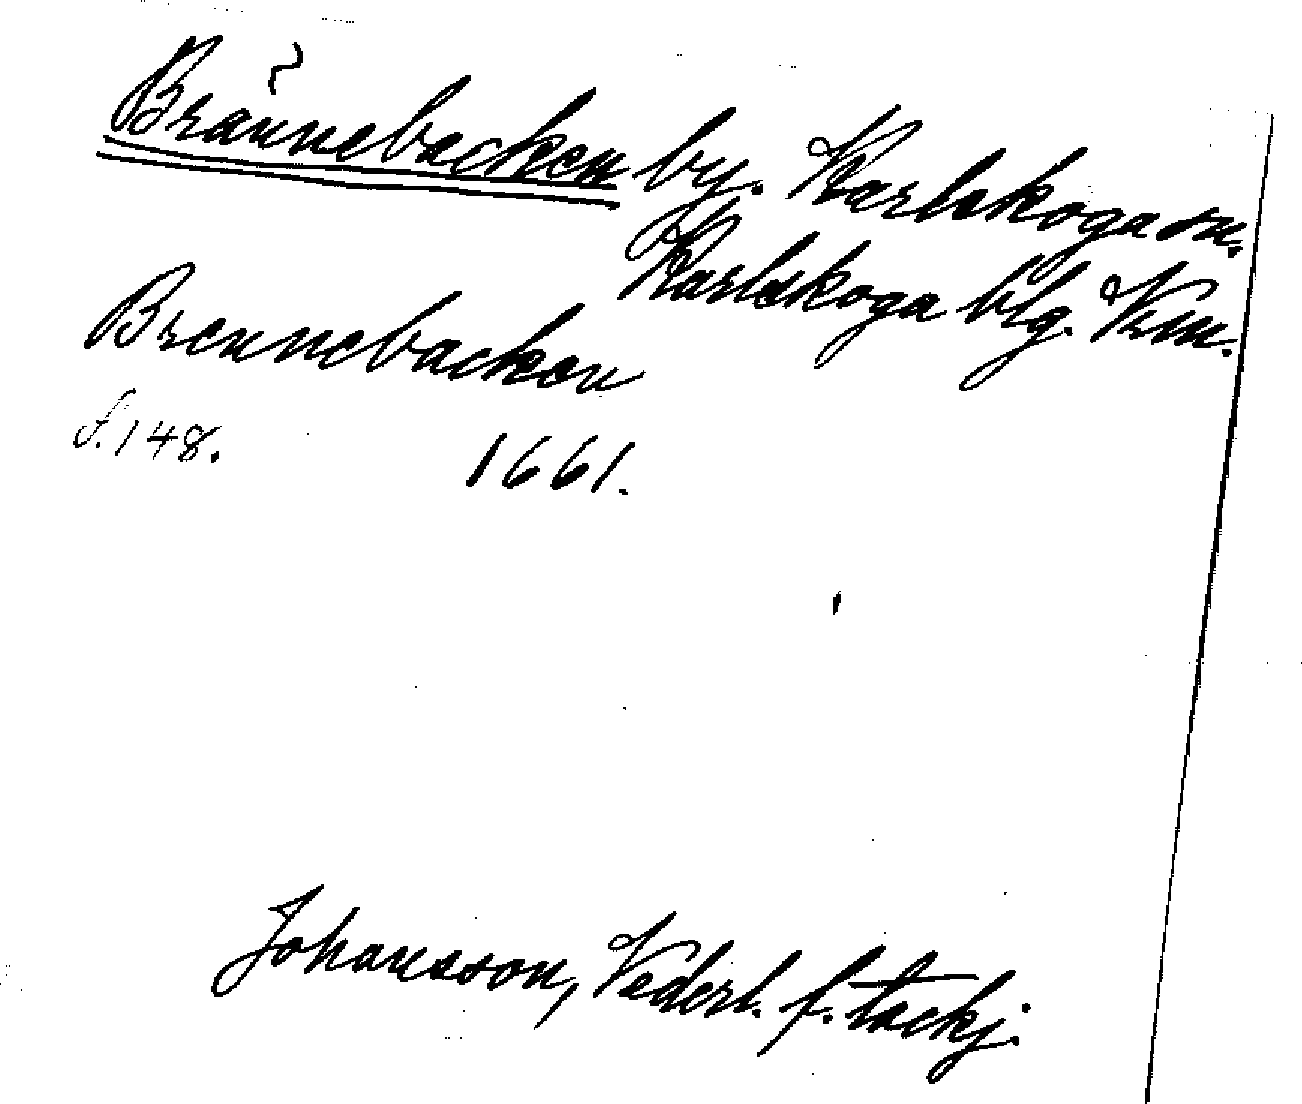 Brännebacken by. Karlskoga sn.
Karlskoga blg. Vrm.
Brennebacken
s. 148. 1661.
Johansson, Vederl. f. tackj.